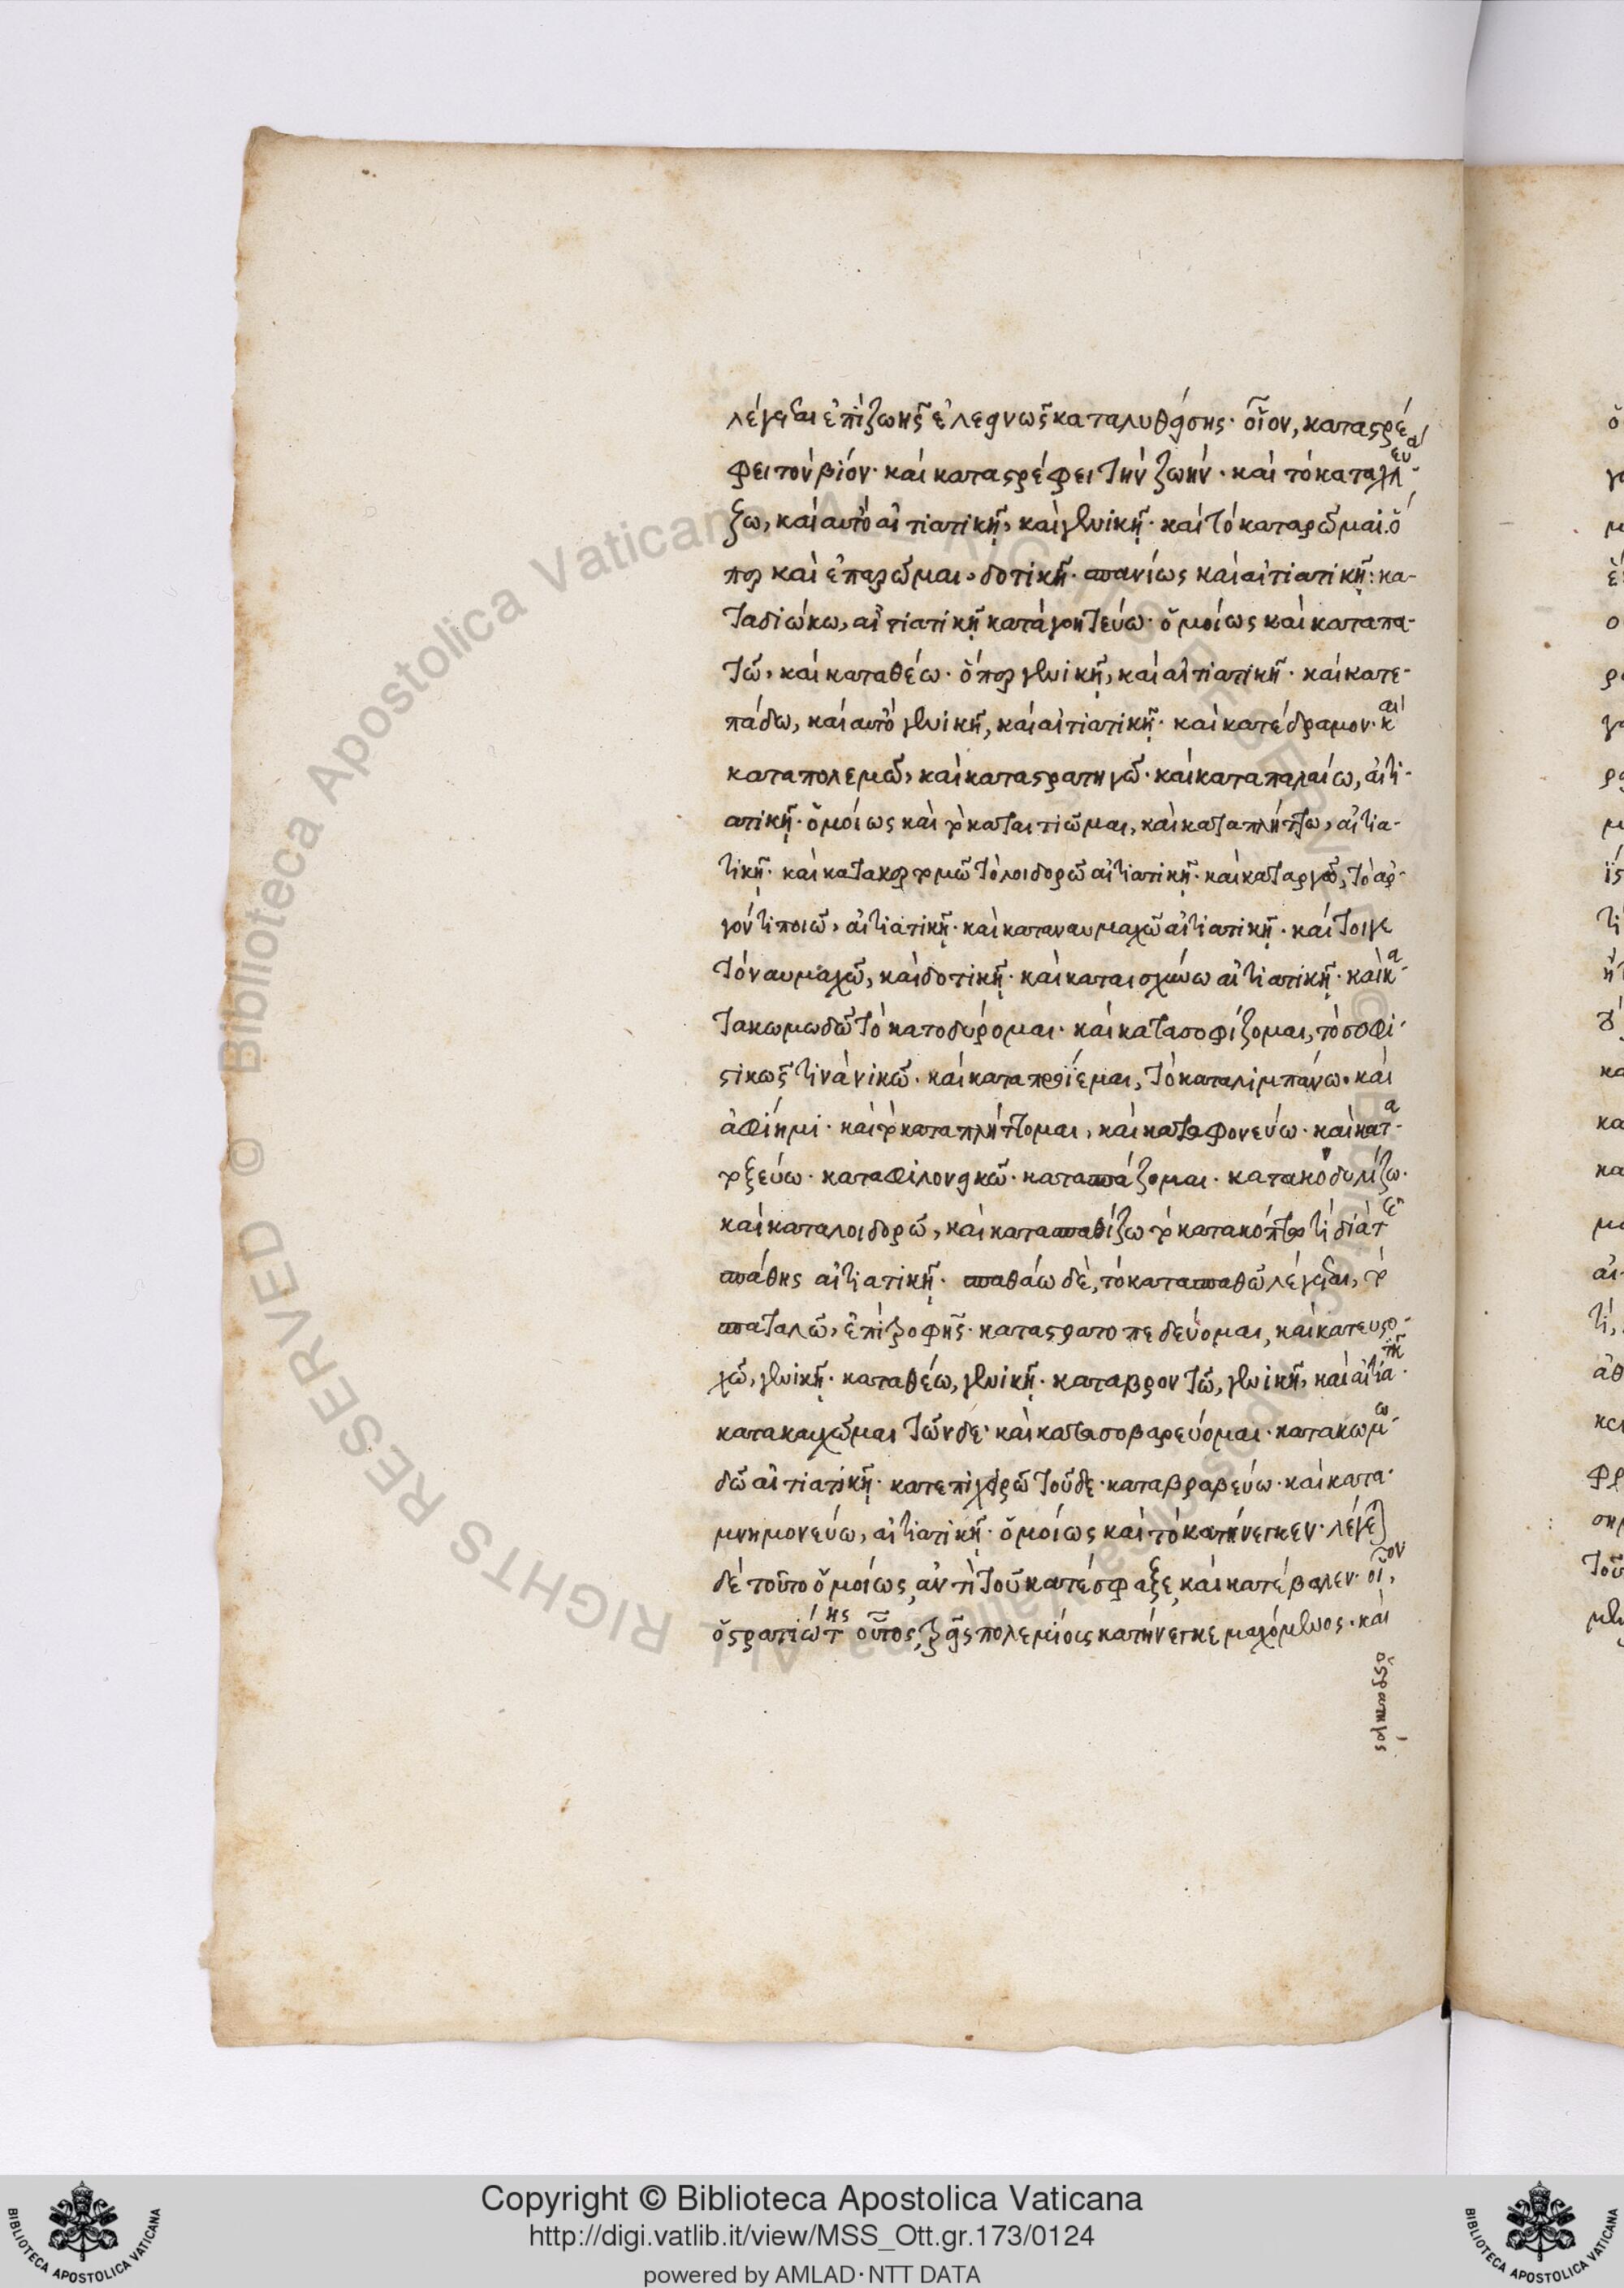 λέγεται ἐπὶ ζωῆς ἐλεεινῶς καταλυθείσης· οἷον, καταστρέ
φει τὸν βίον· καὶ καταστρέφει τὴν ζωήν· καὶ τὸ καταχλευά
ζω, καὶ αὐτὸ αἰτιατικῇ, καὶ γενικῇ· καὶ τὸ καταρῶμαι· ὅ
περ καὶ ἐπαρῶμαι, δοτικῇ· σπανίως καὶ αἰτιατικῇ: κα-
ταδιώκω, αἰτιατικῇ καταγοητεύω· ὁμοίως καὶ καταπα-
τῶ, καὶ καταθέω· ὅπερ γενικῇ, καὶ αἰτιατικῇ· καὶ κατε-
πάδω, καὶ αὐτὸ γενικῇ, καὶ αἰτιατικῇ· καὶ κατέδραμον· καὶ
καταπολεμῶ, καὶ καταστρατηγῶ· καὶ καταπαλαίω, αἰτι-
ατικῇ· ὁμοίως καὶ τὸ καταιτιῶμαι, καὶ καταπλήττω, αἰτια-
τικῇ· καὶ κατακερτομῶ τὸ λοιδορῶ αἰτιατικῇ· καὶ καταργῶ, τὸ ἀρ-
γόν τι ποιῶ, αἰτιατικῇ· καὶ καταναυμαχῶ αἰτιατικῇ· καί τοιγε
τὸ ναυμαχῶ, καὶ δοτικῇ· καὶ καταισχύνω αἰτιατικῇ· καὶ κα-
τακωμωδῶ τὸ κατοδύρομαι· καὶ κατασοφίζομαι, τὸ σοφι-
στικῶς τινὰ νικῶ· καὶ καταπροΐεμαι, τὸ καταλιμπάνω· καὶ
ἀφίημι· καὶ τὸ καταπλήττομαι, καὶ καταφονεύω· καὶ κατα-
τοξεύω· καταφιλονεικῶ· κατασπάζομαι· κατακονδυλίζω·
καὶ καταλοιδορῶ, καὶ κατασπαθίζω τὸ κατακόπτω τι διὰ τῆς
σπάθης αἰτιατικῇ· σπαθάω δὲ, τὸ κατασπαθῶ λέγεται, τὸ
σπαταλῶ, ἐπὶ τροφῆς· καταστρατοπεδεύομαι, καὶ κατευστο-
χῶ, γενικῇ· καταθέω, γενικῇ· καταβροντῶ, γενικῇ, καὶ αἰτιατικῇ·
κατακαυχῶμαι τῶνδε· καὶ κατασοβαρεύομαι· κατακωμω-
δῶ αἰτιατικῇ· κατεπιχειρῶ τοῦδε· καταβραβεύω· καὶ κατα-
μνημονεύω, αἰτιατικῇ· ὁμοίως καὶ τὸ κατήνεγκεν· λέγεται
δὲ τοῦτο ὁμοίως, ἀντὶ τοῦ κατέσφαξε, καὶ κατέβαλεν· οἷον,
ὁ στρατιώτης οὗτος, τοῖς πολεμίοις κατήνεγκε μαχόμενος· καὶ